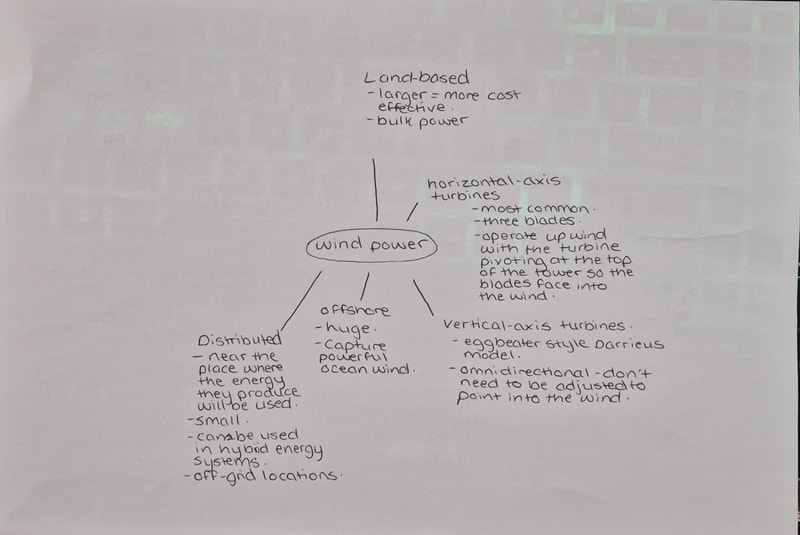 Land-based
- larger = more cost
effective.
- bulk power
horizontal-axis
turbines
- most common.
- three blades.
- operate up wind
with the turbine
pivoting at the top
of the tower so the
blades face into
the wind.
wind power
Distributed
- near the
place where
the energy
they produce
will be used.
- small.
- can be used
in hybrid energy
systems.
- off-grid locations.
offshore
- huge.
- capture
powerful
ocean wind.
Vertical-axis turbines.
- eggbeater style Darrieus
model.
- omnidirectional - don't
need to be adjusted to
point into the wind.